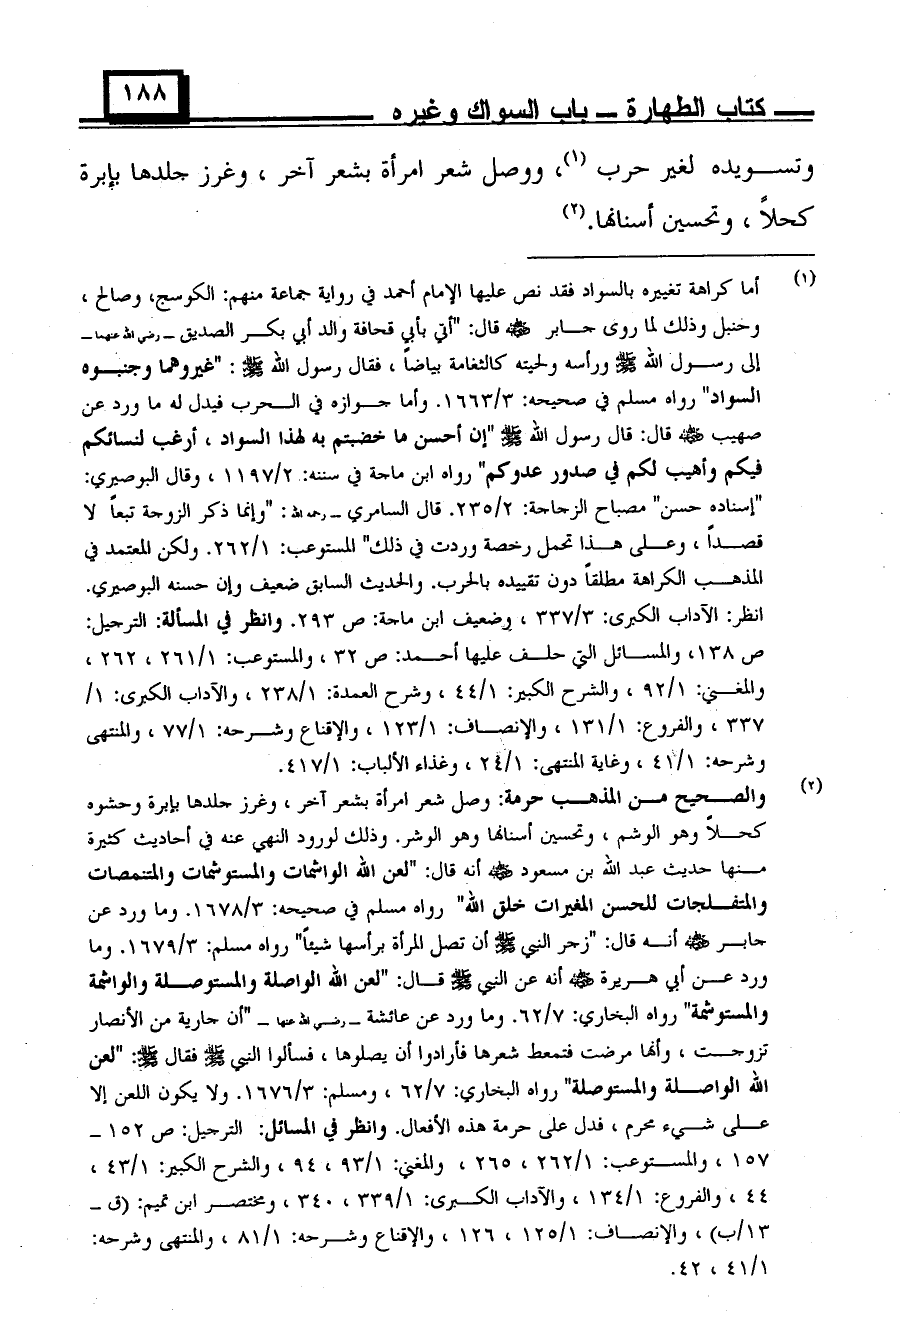 كتاب الطهارة – باب السواك وغيره
١٨٨
وتسويده لغير حرب (١)، ووصل شعر امرأة بشعر آخر ، وغرز جلدها بإبرة
كحلاً ، وتحسين أسنانها.(٢)
(١) أما كراهة تغييره بالسواد فقد نص عليها الإمام أحمد في رواية جماعة منهم: الكوسج، وصالح ،
وحنبل وذلك لما روى جابر ﷺ قال: "أتي بأبي قحافة والد أبي بكر الصديق – رضي الله عنهما –
إلى رسول الله ﷺ ورأسه ولحيته كالثغامة بياضاً ، فقال رسول الله ﷺ : "غيروهما وجنبوه
السواد" رواه مسلم في صحيحه: ١٦٦٣/٣. وأما جوازه في الحرب فيدل له ما ورد عن
صهيب ﷺ قال: قال رسول الله ﷺ "إن أحسن ما خضبتم به لهذا السواد ، أرغب لنسائكم
فيكم وأهيب لكم في صدور عدوكم" رواه ابن ماجة في سننه: ١١٩٧/٢ ، وقال البوصيري:
"إسناده حسن" مصباح الزجاجة: ٢٣٥/٢. قال السامري – رحمه الله : "وإنما ذكر الزوجة تبعاً لا
قصداً ، وعلى هذا تحمل رخصة وردت في ذلك" المستوعب: ٢٦٢/١. ولكن المعتمد في
المذهب الكراهة مطلقاً دون تقييده بالحرب. والحديث السابق ضعيف وإن حسنه البوصيري.
انظر: الآداب الكبرى: ٣٣٧/٣ ، وضعيف ابن ماجة: ص ٢٩٣. وانظر في المسألة: الترجيل:
ص ١٣٨، والمسائل التي حلف عليها أحمد: ص ٣٢ ، والمستوعب: ٢٦١/١ ، ٢٦٢ ،
والمغني: ٩٢/١ ، والشرح الكبير: ٤٤/١ ، وشرح العمدة: ٢٣٨/١ ، والآداب الكبرى: ١/
٣٣٧ ، والفروع: ١٣١/١ ، والإنصاف: ١٢٣/١ ، والإقناع وشرحه: ٧٧/١ ، والمنتهى
وشرحه: ٤١/١ ، وغاية المنتهى: ٢٤/١ ، وغذاء الألباب: ٤١٧/١.
(٢) والصحيح من المذهب حرمة: وصل شعر امرأة بشعر آخر ، وغرز جلدها بإبرة وحشوه
كحلاً وهو الوشم ، وتحسين أسنانها وهو الوشر. وذلك لورود النهي عنه في أحاديث كثيرة
منها حديث عبد الله بن مسعود ﷺ أنه قال: "لعن الله الواشمات والمستوشمات والمتنمصات
والمتفلجات للحسن المغيرات خلق الله" رواه مسلم في صحيحه: ١٦٧٨/٣. وما ورد عن
جابر ﷺ أنه قال: "زجر النبي ﷺ أن تصل المرأة برأسها شيئاً" رواه مسلم: ١٦٧٩/٣. وما
ورد عن أبي هريرة ﷺ أنه عن النبي ﷺ قال: "لعن الله الواصلة والمستوصلة والواشمة
والمستوشمة" رواه البخاري: ٦٢/٧. وما ورد عن عائشة – رضي الله عنها – "أن جارية من الأنصار
تزوجت ، وأنها مرضت فتمعط شعرها فأرادوا أن يصلوها ، فسألوا النبي ﷺ فقال ﷺ: "لعن
الله الواصلة والمستوصلة" رواه البخاري: ٦٢/٧ ، ومسلم: ١٦٧٦/٣. ولا يكون اللعن إلا
على شيء محرم ، فدل على حرمة هذه الأفعال. وانظر في المسائل: الترجيل: ص ١٥٢ –
١٥٧ ، والمستوعب: ٢٦٢/١ ، ٢٦٥ ، والمغني: ٩٣/١ ، ٩٤ ، والشرح الكبير: ٤٣/١ ،
٤٤ ، والفروع: ١٣٤/١ ، والآداب الكبرى: ٣٣٩/١ ، ٣٤٠ ، ومختصر ابن تميم: (ق –
١٣/ب) ، والإنصاف: ١٢٥/١ ، ١٢٦ ، والإقناع وشرحه: ٨١/١ ، والمنتهى وشرحه:
٤١/١ ، ٤٢.